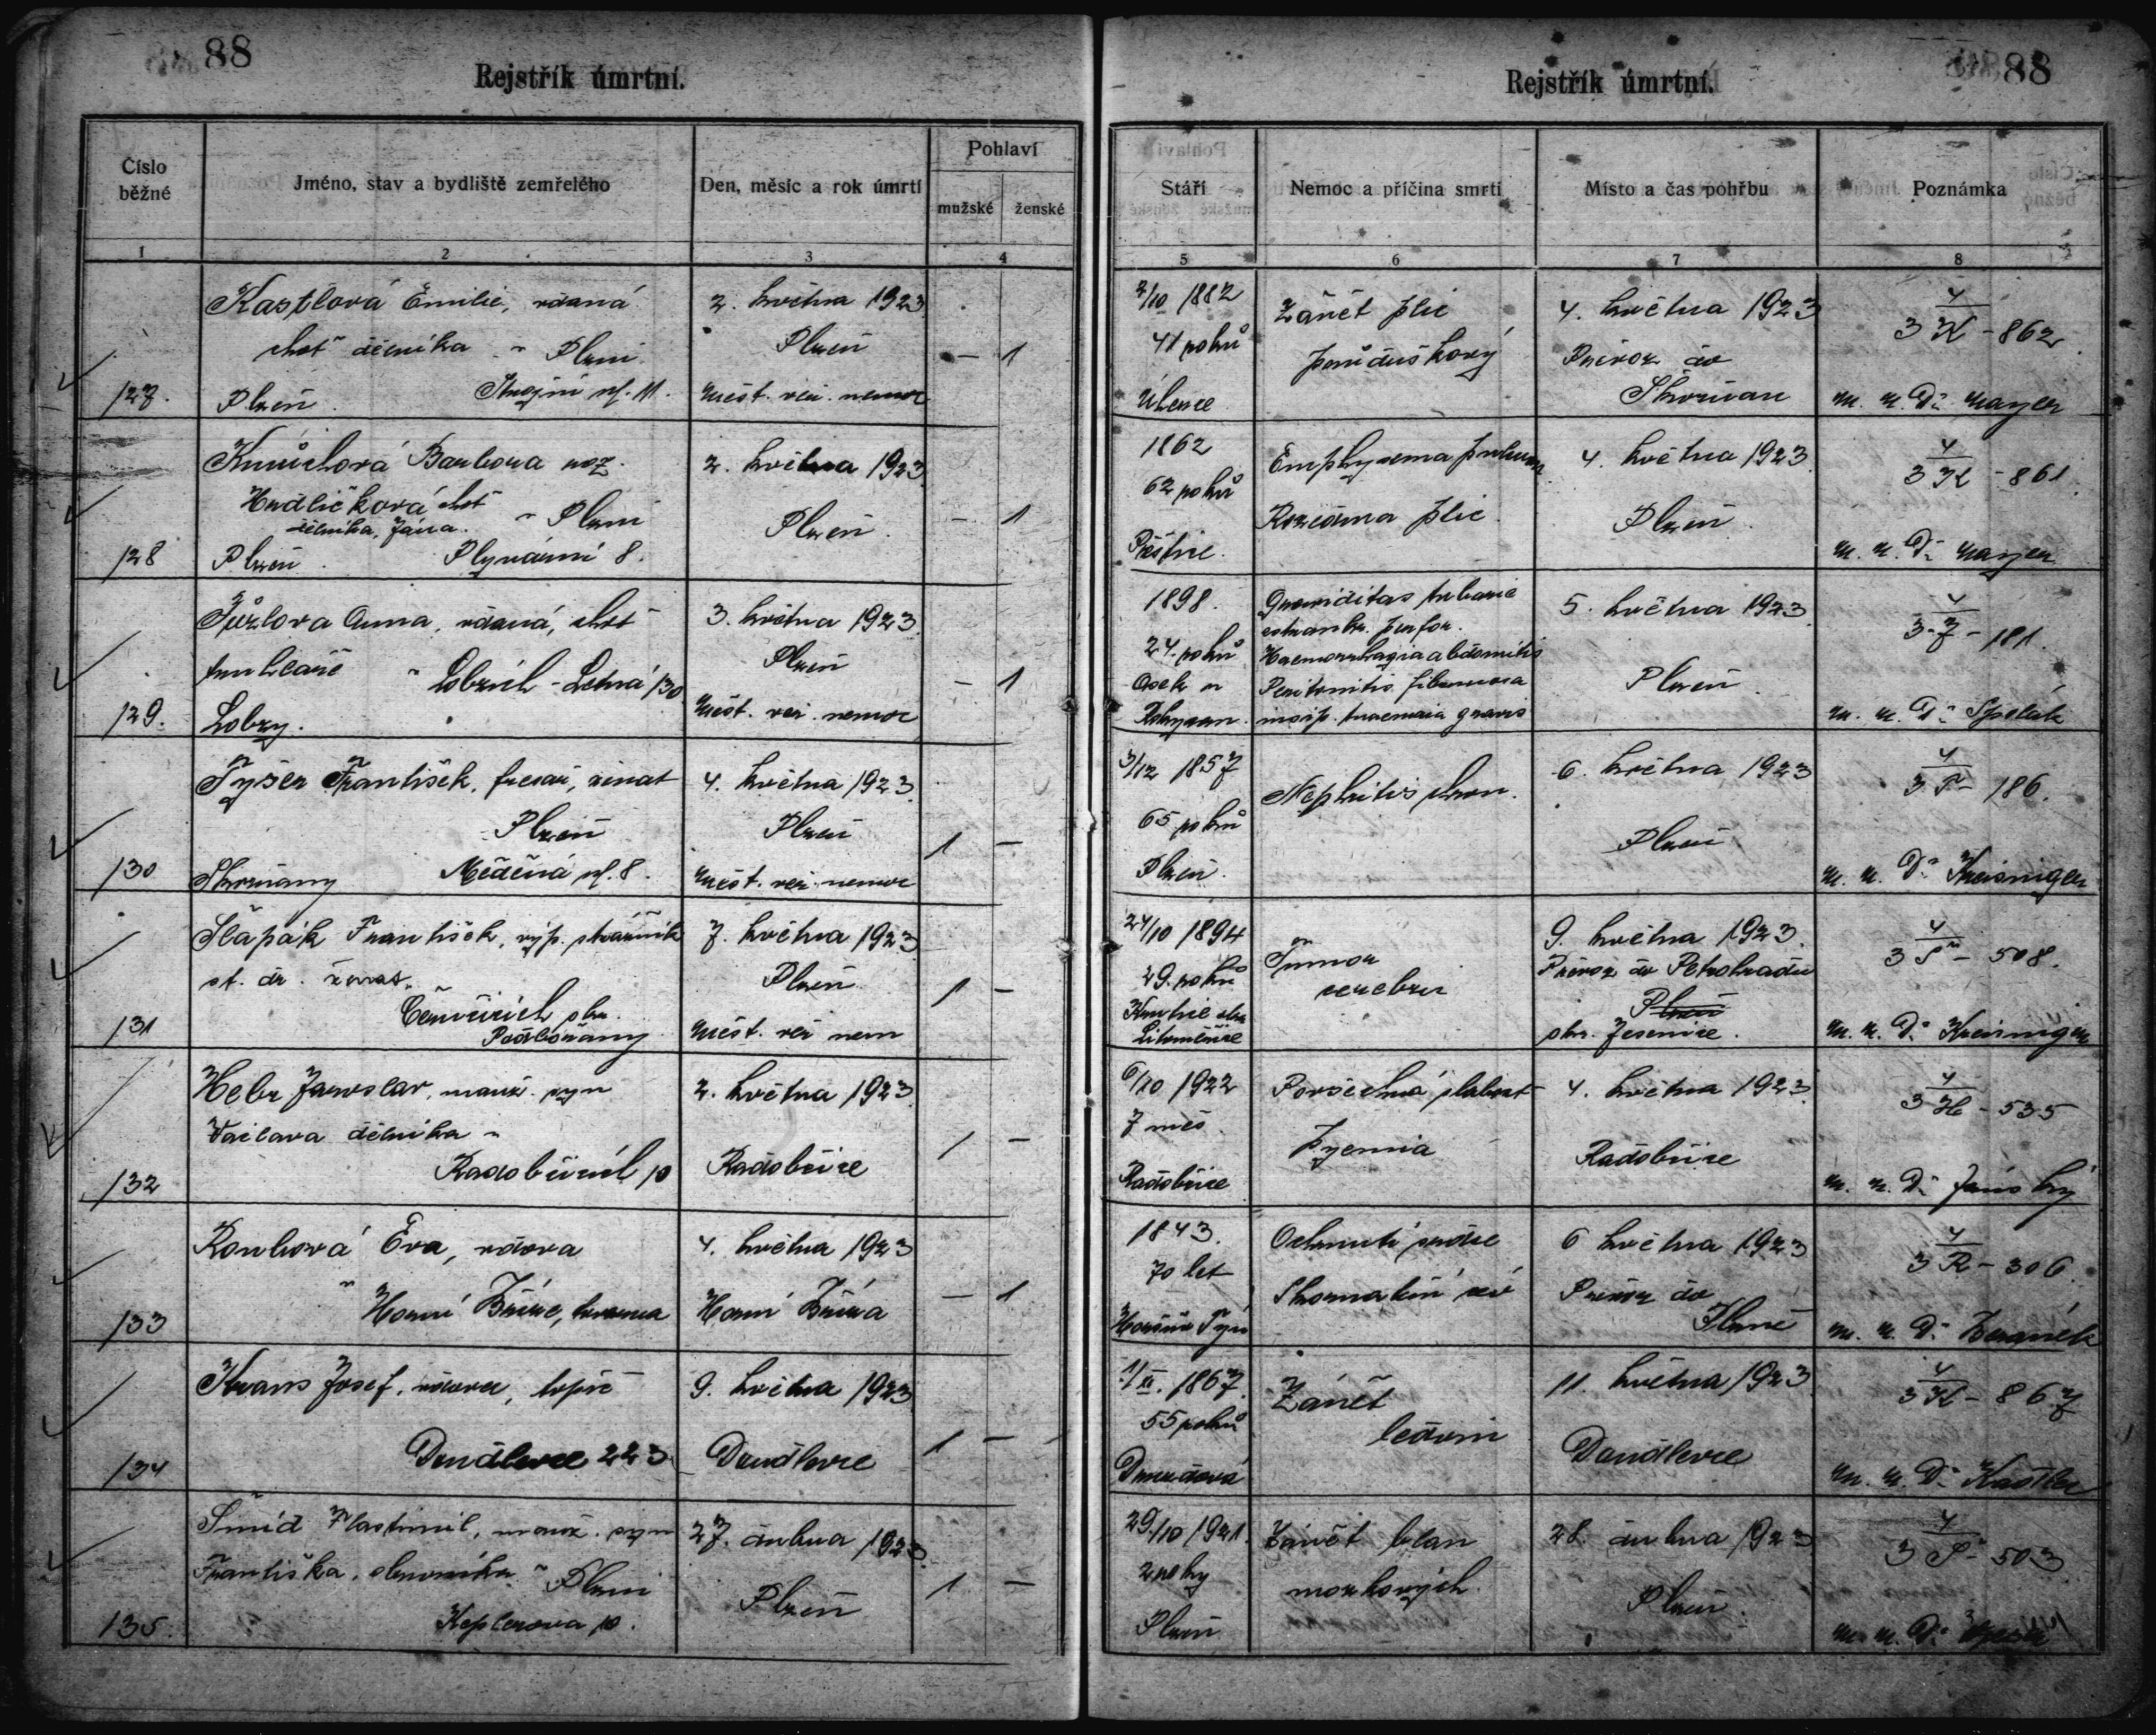 88
Rejstřík úmrtní.
Číslo běžné
Jméno, stav a bydliště zemřelého
Den, měsíc a rok úmrtí
Pohlaví
mužské
ženské
1
2
3
4
127.
Kastlová Emilie, vdaná
choť dělníka v Plzni
Plzeň. Strojní ul. 11.
2. května 1923
Plzeň
Měst. vš. nemoc
– 1
128
Barbora roz.
Hrdličková choť
dělníka, Jána. v Plzni
Plzeň. Plynární 8.
2. května 1923
Plzeň.
– 1
129.
Anna, vdaná, choť
truhláře v Lobzích - Letná 130
Lobzy.
3. května 1923
Plzeň
Měst. vš. nemoc
– 1
130
Tyšer František, vinat
Plzeň
Skvrňany Měděná ul. 8.
4. května 1923
Plzeň
Měst. vš. nemoc
1 –
131
Slapák František, výp. strážník
st. dr. ženat.
okr.
Podbořany
7. května 1923
Plzeň
Měst. vš nem
1 –
132
Hebr Jaroslav, manž. syn
Václava dělníka v
Radobčicích 10
2. května 1923
Radobčice
1 –
133
Roubová Eva, vdova
v Horní Bříze,
4. května 1923
Horní Bříza
– 1
134
Kraus Josef, vdovec, topič
Doudlevce 223
9. května 1923
Doudlevce
1 –
135.
Šmíd Vlastimil, manž. syn
Františka, v Plzni
Keplerova 10.
27. dubna 1923
Plzeň
1 –
88
Rejstřík úmrtní.
Stáří
Nemoc a příčina smrti
Místo a čas pohřbu
Poznámka
5
6
7
8
2/10 1882
41 roků
Úherce
Zánět plic
průduškový
4. května 1923
Převoz do
Skvrňan
4
3 K - 862
m. u. Dr. Mayer
1862
62 roků
Přeštice.
Emphysema pulmon
Rozedma plic.
4. května 1923
Plzeň.
4
3 K - 861
m. u. Dr. Mayer
1898.
24. roků
Osek u
Rokycan.
Graviditas tubaria
extrauter. perfor.
Haemorrhagia abdomitis
Peritonitis fibrinosa
incip. anaemia gravis
5. května 1923
Plzeň.
4
181.
m. u. Dr.
3/12 1857
65 roků
Plzeň.
Nephritis chron.
6. května 1923
Plzeň
4
3 T - 186.
m. u. Dr. Kreisinger
24/10 1894
29. roků
okr
Litoměřice
Tumor
cerebri
9. května 1923.
Převoz do Petrohradu
Plzeň
okr. Jesenice.
4
3 S - 508.
m. u. Dr. Kreisinger
6/10 1922
7 měs.
Radobčice
Povšechná slabost
pyemia
4. května 1923.
Radobčice
4
3 H - 535
m. u. Dr. Jánský
1843.
70 let
Horšův Týn
Ochrnutí srdce
Skornatění cév
6 května 1923
Převoz do
Plané
4
3 R - 306.
m. u. Dr. Beránek
1/II. 1867.
55 roků
Zánět
ledvin
11. května 1923
Doudlevce
4
3 K - 867
m. u. Dr. Kastler
29/10 1921.
2 roky
Plzeň
Zánět blan
mozkových.
28. dubna 1923
Plzeň.
4
3 Š - 503
m. u. Dr.